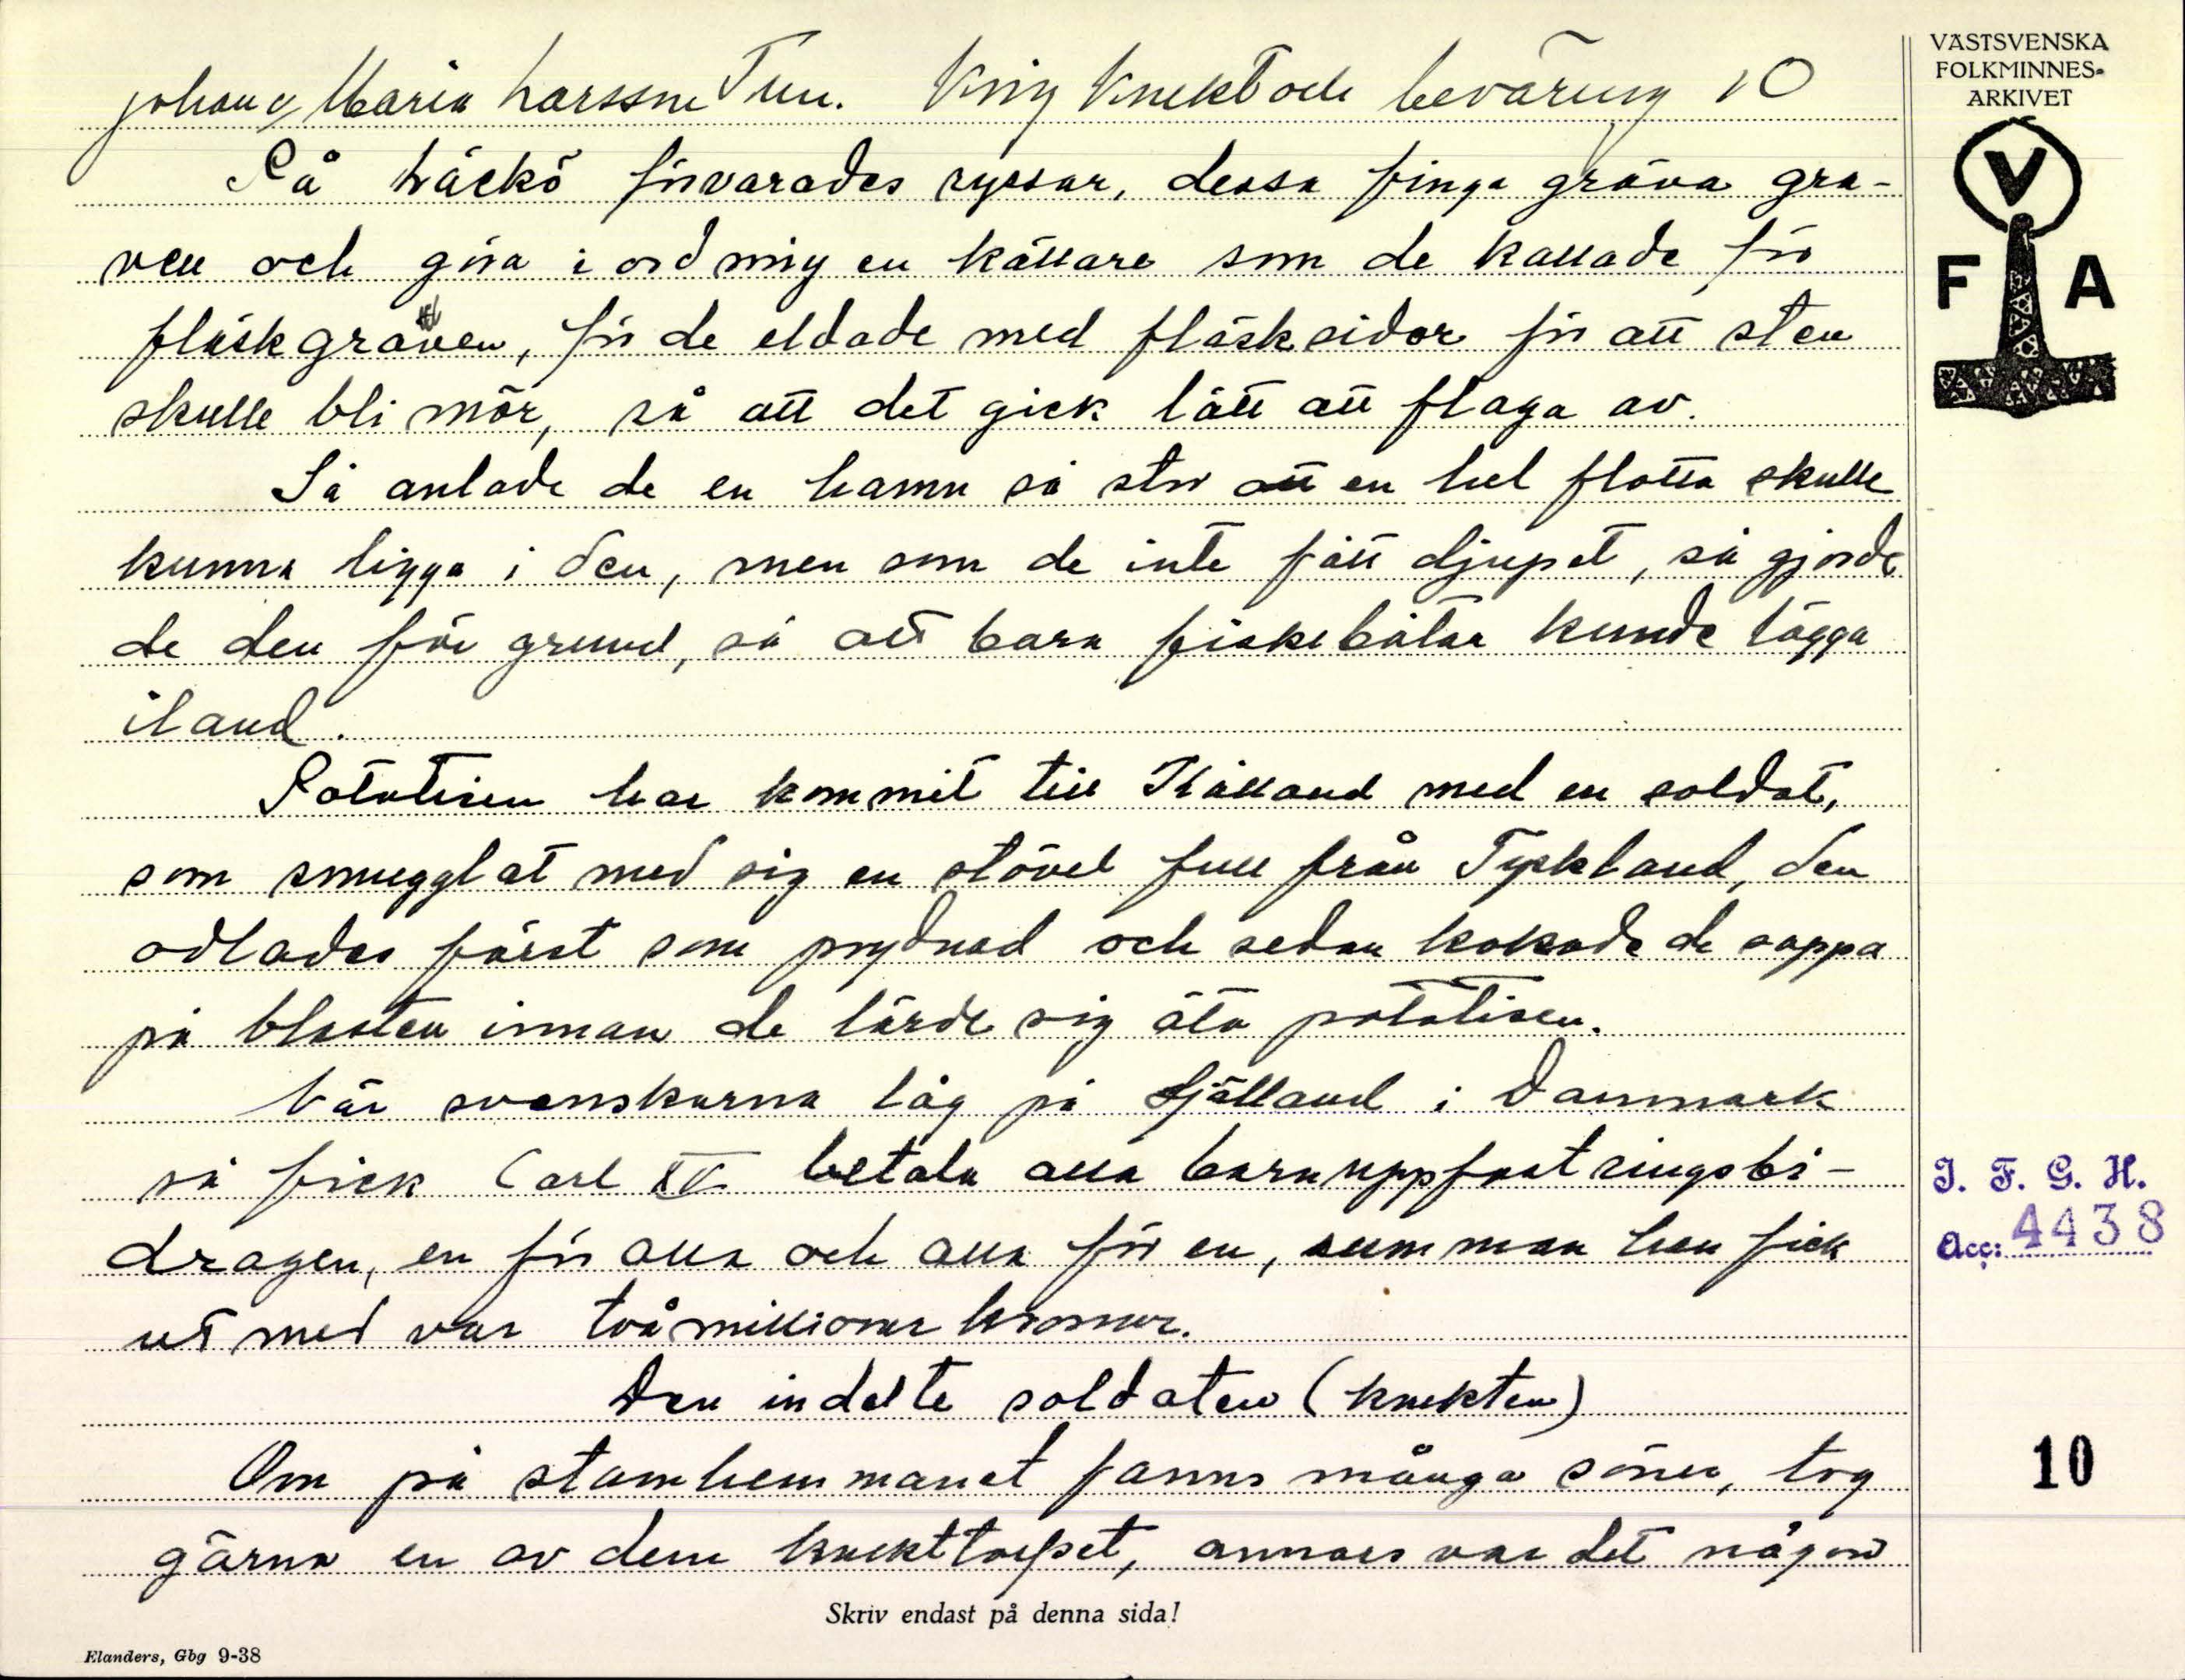 Johan o Maria Larsson Tun. Krig Knekt och bevaring 10
På Läckö förvarades ryssar, dessa finga gräva gra-
ven och göra i ordning en källare som de kallade för
fläskgraven, för de eldade med fläsksidor för att sten
skulle bli mör, så att det gick lätt att flaga av.
Så anlade de en hamn så stor att en hel flotta skulle
kunna ligga i den, men som de inte fått djupet, så gjorde
de den för grund, så att bara fiskebåtar kunde lägga
iland.
Potatisen har kommit till Kålland med en soldat,
som smugglat med sig en stövel full från Tyskland, den
odlades först som prydnad och sedan kokade de soppa
på blasten innan de lärde sig äta potatisen.
När svenskarna låg på Själland i Danmark
så fick Carl XV betala alla barnuppfostringsbi-
dragen, en för alla och alla för en, summan han fick
ut med var två millioner kronor.
Den indelte soldaten (knekten)
Om på stamhemmanet fanns många söner, tog
gärna en av dem knekttorpet, annars var det någon
Skriv endast på denna sida!
Elanders, Gbg 9-38
VÄSTSVENSKA
FOLKMINNES-
ARKIVET
V
F A
I. F. G. H.
Acc: 4438
10